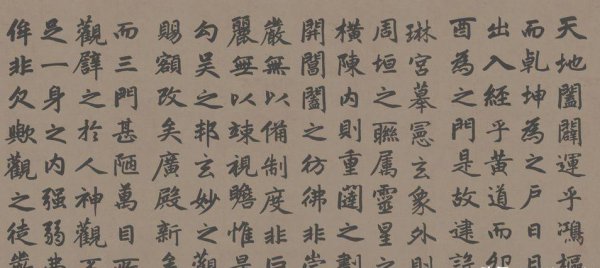 天地闔闢運乎鴻樞
而乹坤為之戶日月
出入經乎黃道而卯
酉為之門是故建設
琳宮摹憲玄象外則
周垣之聯属靈星之
橫陳内則重闥之劃
開閶闔之彷彿非崇
嚴無以備制度非巨
麗無以竦視瞻惟是
勾吳之邦玄妙之觀
賜額改矣廣殿新
而三門甚陋萬目所
觀譬之於人神觀不
足一身之内强弱弗
侔非欠歟觀之徒嚴